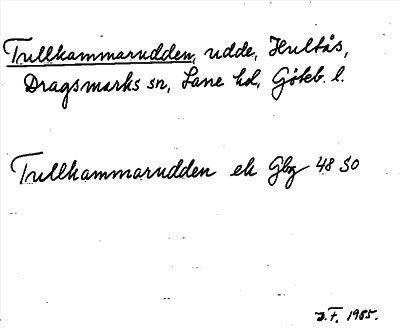 Tullkammarudden, udde, Hultås,
Dragsmarks sn, Lane hd, Göteb. l.
Tullkammarudden ek Gbg 48 SO
J.F. 1985.